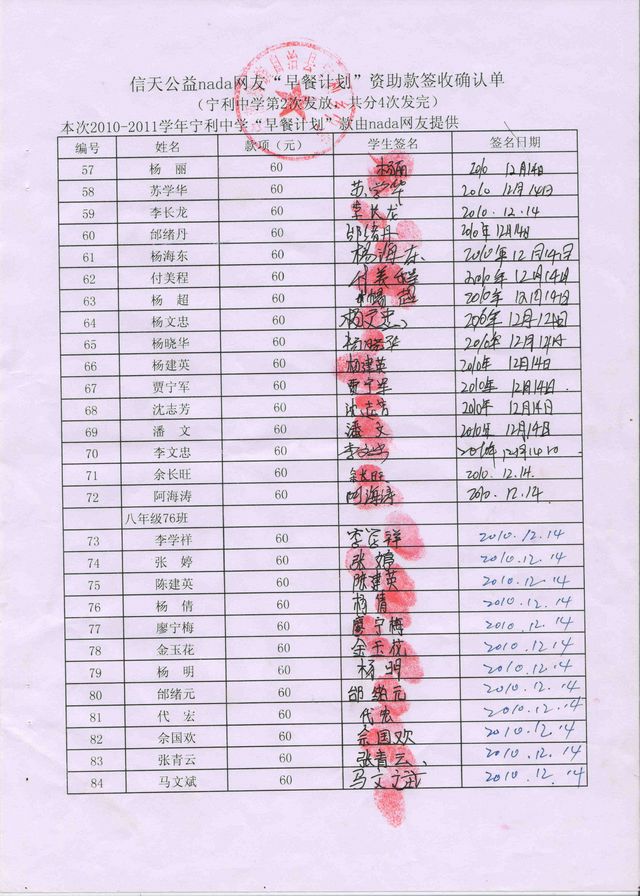 信天公益nada网友“早餐计划”资助款签收确认单
(宁利中学第2次发放，共分4次发完)
本次2010-2011学年宁利中学“早餐计划”款由nada网友提供
编号 姓名 款项(元) 学生签名 签名日期
57 杨 丽 60 杨丽 2010 12月14日
58 苏学华 60 苏学华 2010 12月14日
59 李长龙 60 李长龙 2010.12.14
60 邰绪丹 60 邰绪丹 2010年12月14日
61 杨海东 60 杨海东 2010年12月14日
62 付美程 60 付美程 2010年12月14日
63 杨 超 60 杨超 2010年12月14日
64 杨文忠 60 杨文忠 2010年12月12日
65 杨晓华 60 杨晓华 2010年12月12日
66 杨建英 60 杨建英 2010年12月14日
67 贾宁军 60 贾宁军 2010年12月14日
68 沈志芳 60 沈志芳 2010年12月14日
69 潘 文 60 潘文 2010年12月14日
70 李文忠 60 李文忠 2010年12月14
71 余长旺 60 余长旺 2010.12.14.
72 阿海涛 60 阿海涛 2010.12.14
八年级76班
73 李学祥 60 李学祥 2010.12.14
74 张 婷 60 张婷 2010.12.14
75 陈建英 60 陈建英 2010.12.14
76 杨 倩 60 杨倩 2010.12.14
77 廖宁梅 60 廖宁梅 2010.12.14
78 金玉花 60 金玉花 2010.12.14
79 杨 明 60 杨明 2010.12.14
80 邰绪元 60 邰绪元 2010.12.14
81 代 宏 60 代宏 2010.12.14
82 佘国欢 60 佘国欢 2010.12.14
83 张青云 60 张青云 2010.12.14
84 马文斌 60 马文斌 2010.12.14